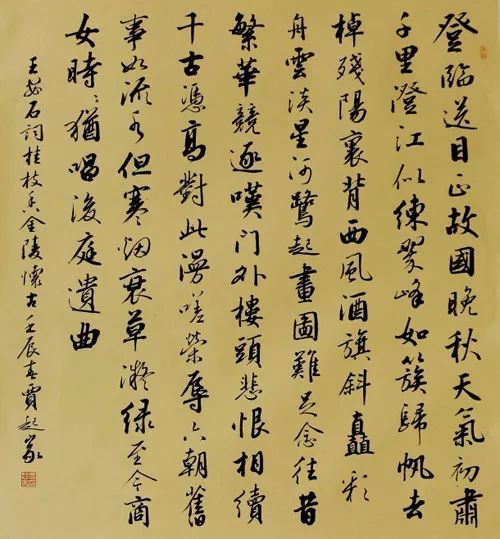 登臨送目正故國晚秋天氣初肅
千里澄江似練翠峰如簇歸帆去
棹殘陽裏背西風酒旗斜矗彩
舟雲淡星河鷺起畫圖難足念往昔
繁華競逐嘆門外樓頭悲恨相續
千古憑高對此漫嗟榮辱六朝舊
事如流水但寒烟衰草凝綠至今商
女時〻猶唱後庭遺曲
王安石詞桂枝香金陵懷古壬辰春賈起家